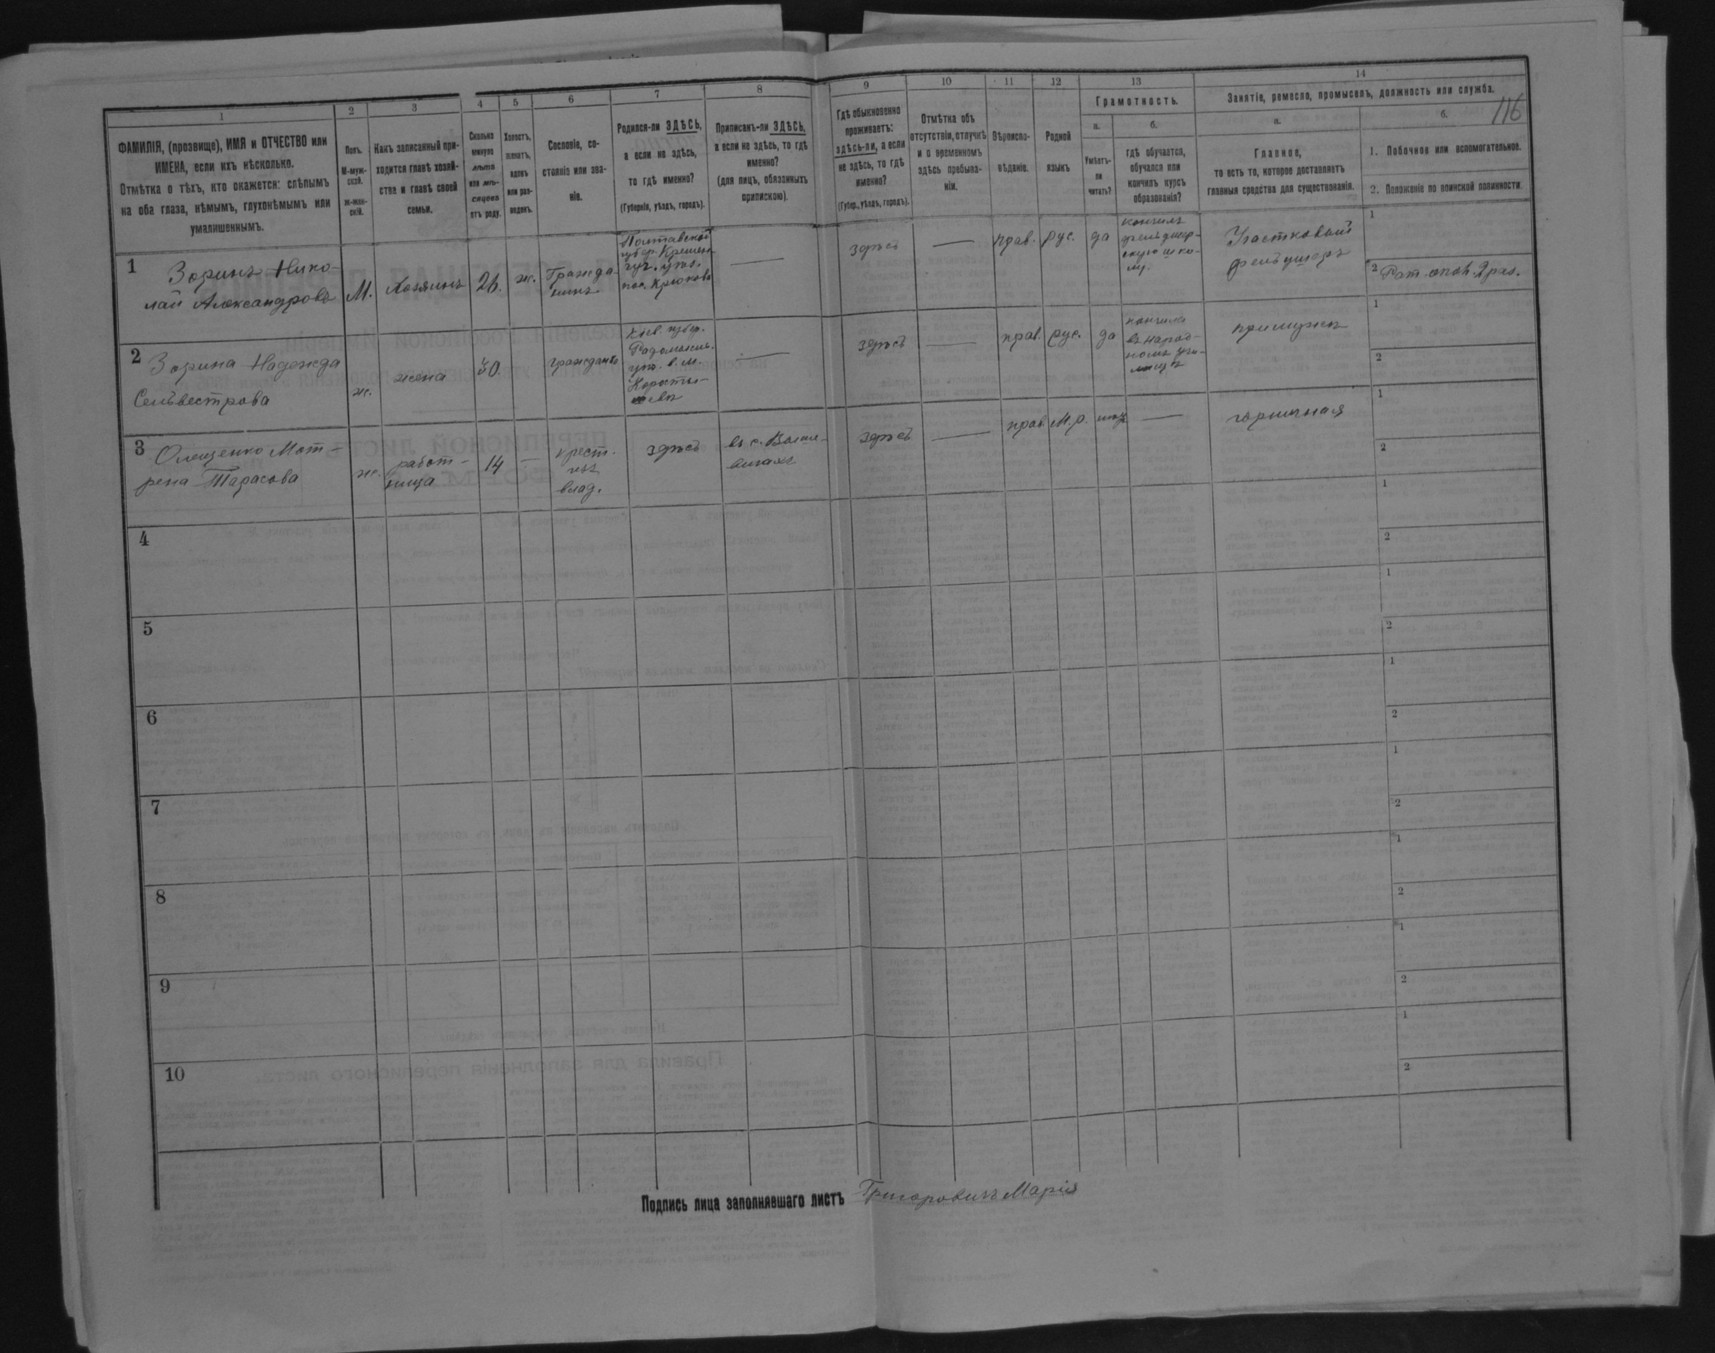 116
1
2
3
4
5
6
7
8
9
10
11
12
13
14
ФАМИЛІЯ, (прозвище), ИМЯ и ОТЧЕСТВО или
ИМЕНА, если ихъ нѣсколько.
Отмѣтка о тѣхъ, кто окажется: слѣпымъ
на оба глаза, нѣмымъ, глухонѣмымъ или
умалишеннымъ.
Полъ.
М-муж-
ской.
ж-жен-
скій.
Какъ записанный при-
ходится главѣ хозяй-
ства и главѣ своей
семьи.
Сколько
минуло
лѣтъ
или мѣ-
сяцевъ
отъ роду.
Холостъ,
женатъ,
вдовъ
или раз-
веденъ.
Сословіе, со-
стояніе или зва-
ніе.
Родился-ли ЗДѢСЬ,
а если не здѣсь,
то гдѣ именно?
(Губернія, уѣздъ, городъ).
Приписанъ-ли ЗДѢСЬ,
а если не здѣсь, то гдѣ
именно?
(для лицъ, обязанныхъ
припискою).
Гдѣ обыкновенно
проживаетъ:
здѣсь-ли, а если
не здѣсь, то гдѣ
именно?
(Губер., уѣздъ, городъ).
Отмѣтка объ
отсутствіи, отлучкѣ
и о временномъ
здѣсь пребыва-
ніи.
Вѣроиспо-
вѣданіе.
Родной
языкъ
Грамотность.
а.
Умѣетъ-
ли
читать?
б.
гдѣ обучается,
обучался или
кончилъ курсъ
образованія?
Занятіе, ремесло, промыселъ, должность или служба.
а.
Главное,
то есть то, которое доставляетъ
главныя средства для существованія.
б.
1. Побочное или вспомогательное.
2. Положеніе по воинской повинности.
1
Зоринъ Нико-
лай Александровъ
М.
Хозяинъ
26.
ж.
Гражда-
нинъ
Полтавской
губер. Кременч
уг. уѣз.
пос. Крюковъ
—
здѣсь
—
прав.
рус.
да
кончилъ
фельдшер-
скую шко-
лу.
Участковый
фельдшеръ
1
2
2
Зорина Надежда
Сельвестрова
ж.
жена
гражданка
Кіев. губер.
Радомысл.
уѣз. в. м.
Коросты-
шевъ
—
здѣсь
—
прав.
рус.
да
кончила
въ народ-
номъ учи-
лищѣ
при мужѣ
1
2
3
Олещенко Мот-
рена Тарасова
ж.
работ-
ница
14
—
крест.
влад.
здѣсь
здѣсь
—
прав.
М.р.
—
горничная
1
2
4
1
2
5
1
2
6
1
2
7
1
2
8
1
2
9
1
2
10
1
2
Подпись лица заполнявшаго листъ Григоровичъ Марія